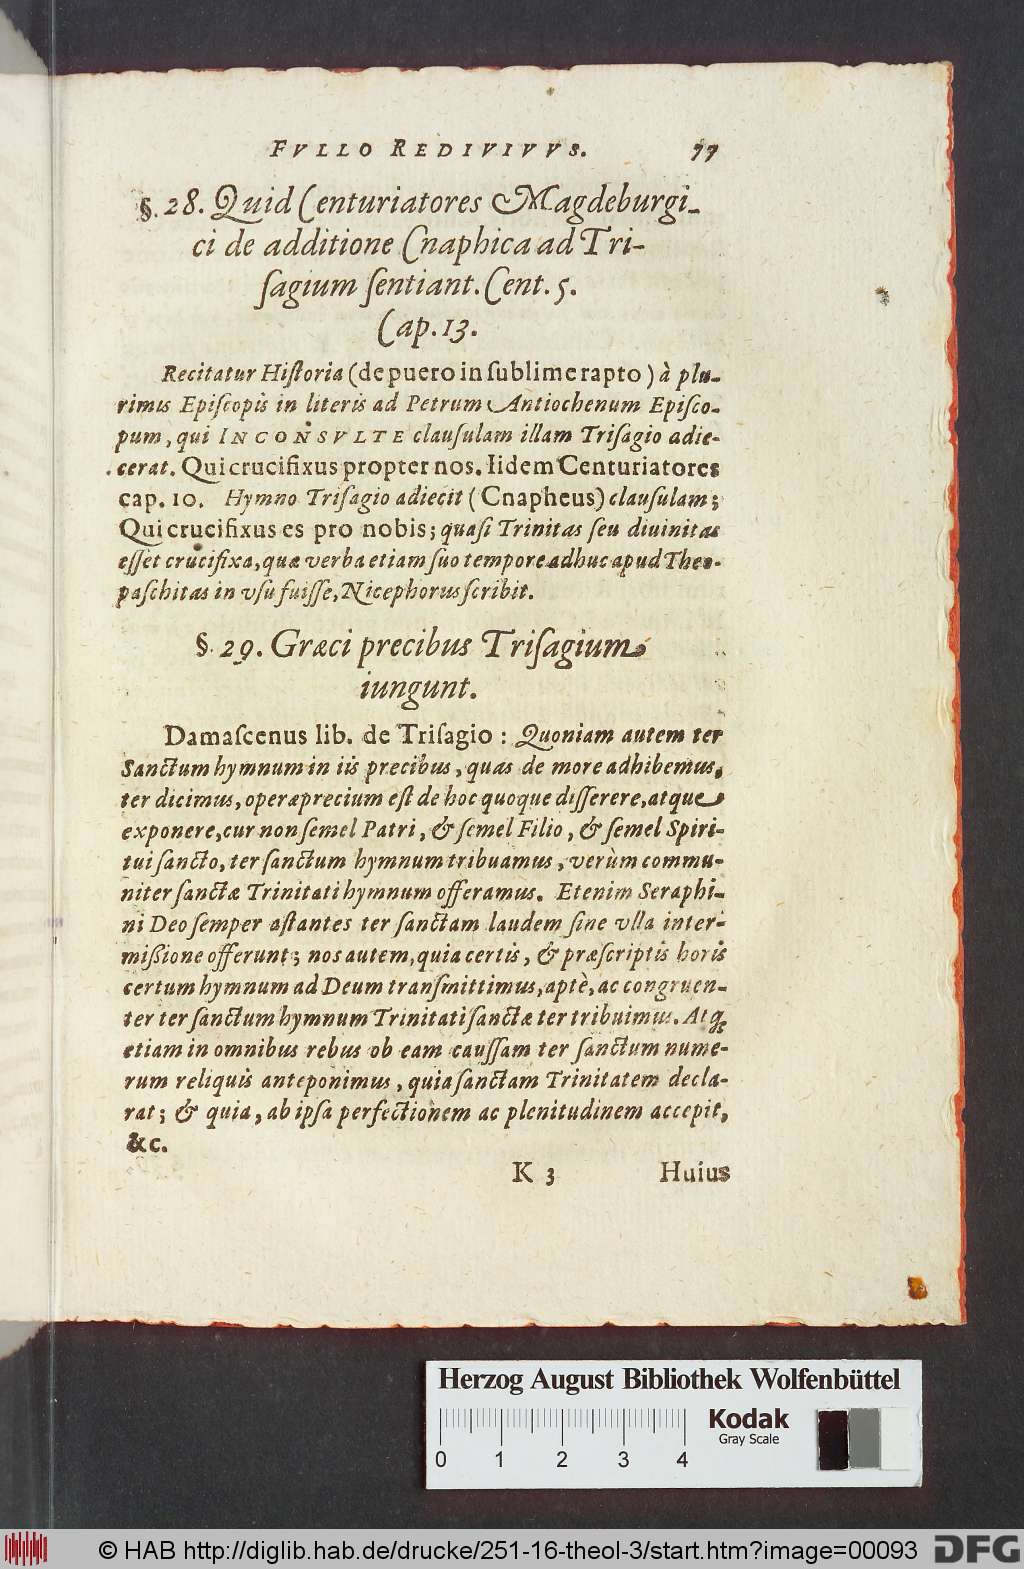 FVLLO REDIVIVVS. 77
§. 28. Quid Centuriatores Magdeburgi-
ci de additione Cnaphica ad Tri-
ſagium ſentiant. Cent. 5.
Cap. 13.
Recitatur Hiſtoria (de puero in ſublime rapto) à plu-
rimis Epiſcopis in literis ad Petrum Antiochenum Epiſco-
pum, qui INCONSVLTE clauſulam illam Triſagio adie-
cerat. Qui crucifixus propter nos. Iidem Centuriatores
cap. 10. Hymno Triſagio adiecit (Cnapheus) clauſulam;
Qui crucifixus es pro nobis; quaſi Trinitas ſeu diuinitas
eſſet crucifixa, quæ verba etiam ſuo tempore adhuc apud Theo-
paſchitas in vſu fuiſſe, Nicephorus ſcribit.
§. 29. Græci precibus Triſagium
iungunt.
Damaſcenus lib. de Triſagio: Quoniam autem ter
Sanctum hymnum in iis precibus, quas de more adhibemus,
ter dicimus, operæprecium eſt de hoc quoque diſſerere, atque
exponere, cur non ſemel Patri, & ſemel Filio, & ſemel Spiri-
tui ſancto, ter ſanctum hymnum tribuamus, verùm commu-
niter ſanctæ Trinitati hymnum offeramus. Etenim Seraphi-
ni Deo ſemper aſtantes ter ſanctam laudem ſine vlla inter-
mißione offerunt; nos autem, quia certis, & præſcriptis horis
certum hymnum ad Deum tranſmittimus, aptè, ac congruen-
ter ter ſanctum hymnum Trinitati ſanctæ ter tribuimus. Atq;
etiam in omnibus rebus ob eam cauſſam ter ſanctum nume-
rum reliquis anteponimus, quia ſanctam Trinitatem decla-
rat; & quia, ab ipſa perfectionem ac plenitudinem accepit,
&c.
K 3 Huius
Herzog August Bibliothek Wolfenbüttel
Kodak
Gray Scale
0 1 2 3 4
© HAB http://diglib.hab.de/drucke/251-16-theol-3/start.htm?image=00093
DFG